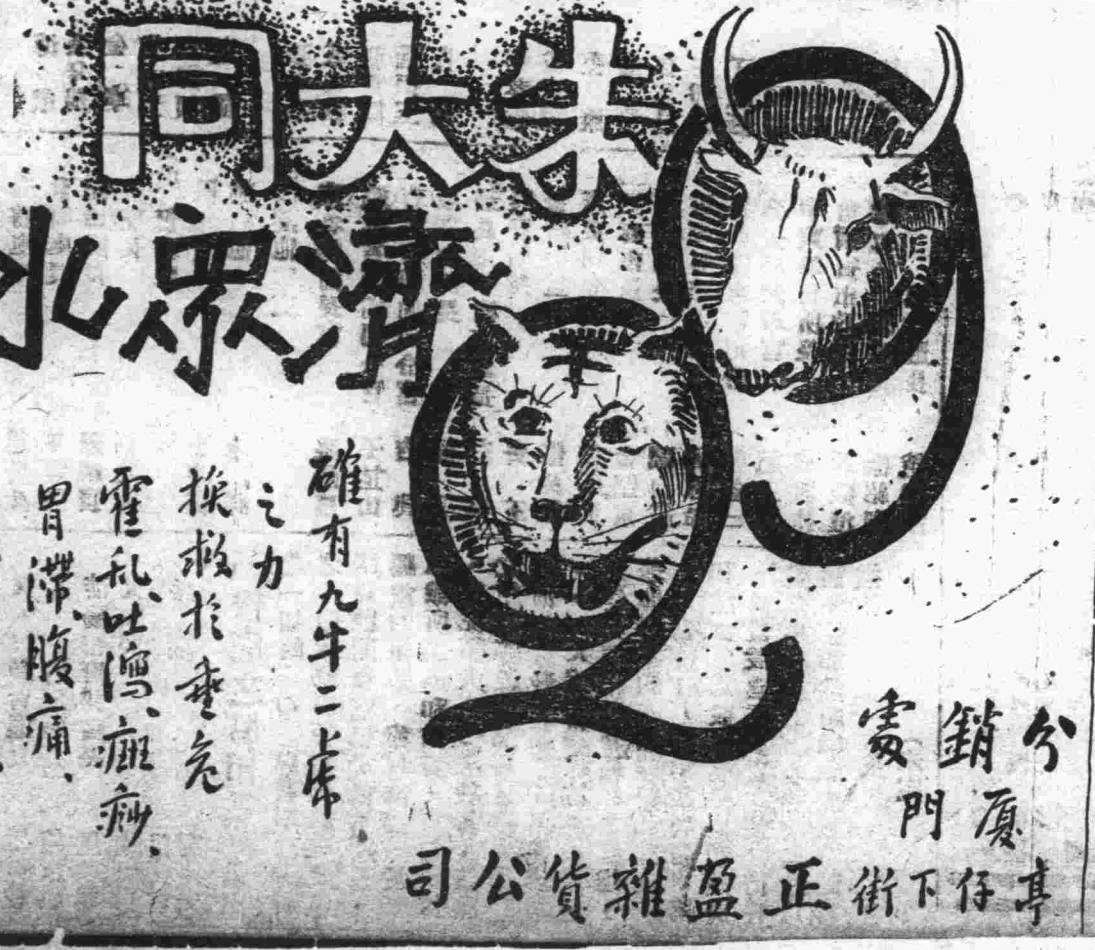 朱大同
濟眾水
確有九牛二虎
之力
換救於垂危
霍乱、吐瀉、痧、
胃滯、腹痛、
92
分銷處
厦門
亭仔下街正盈雜貨公司